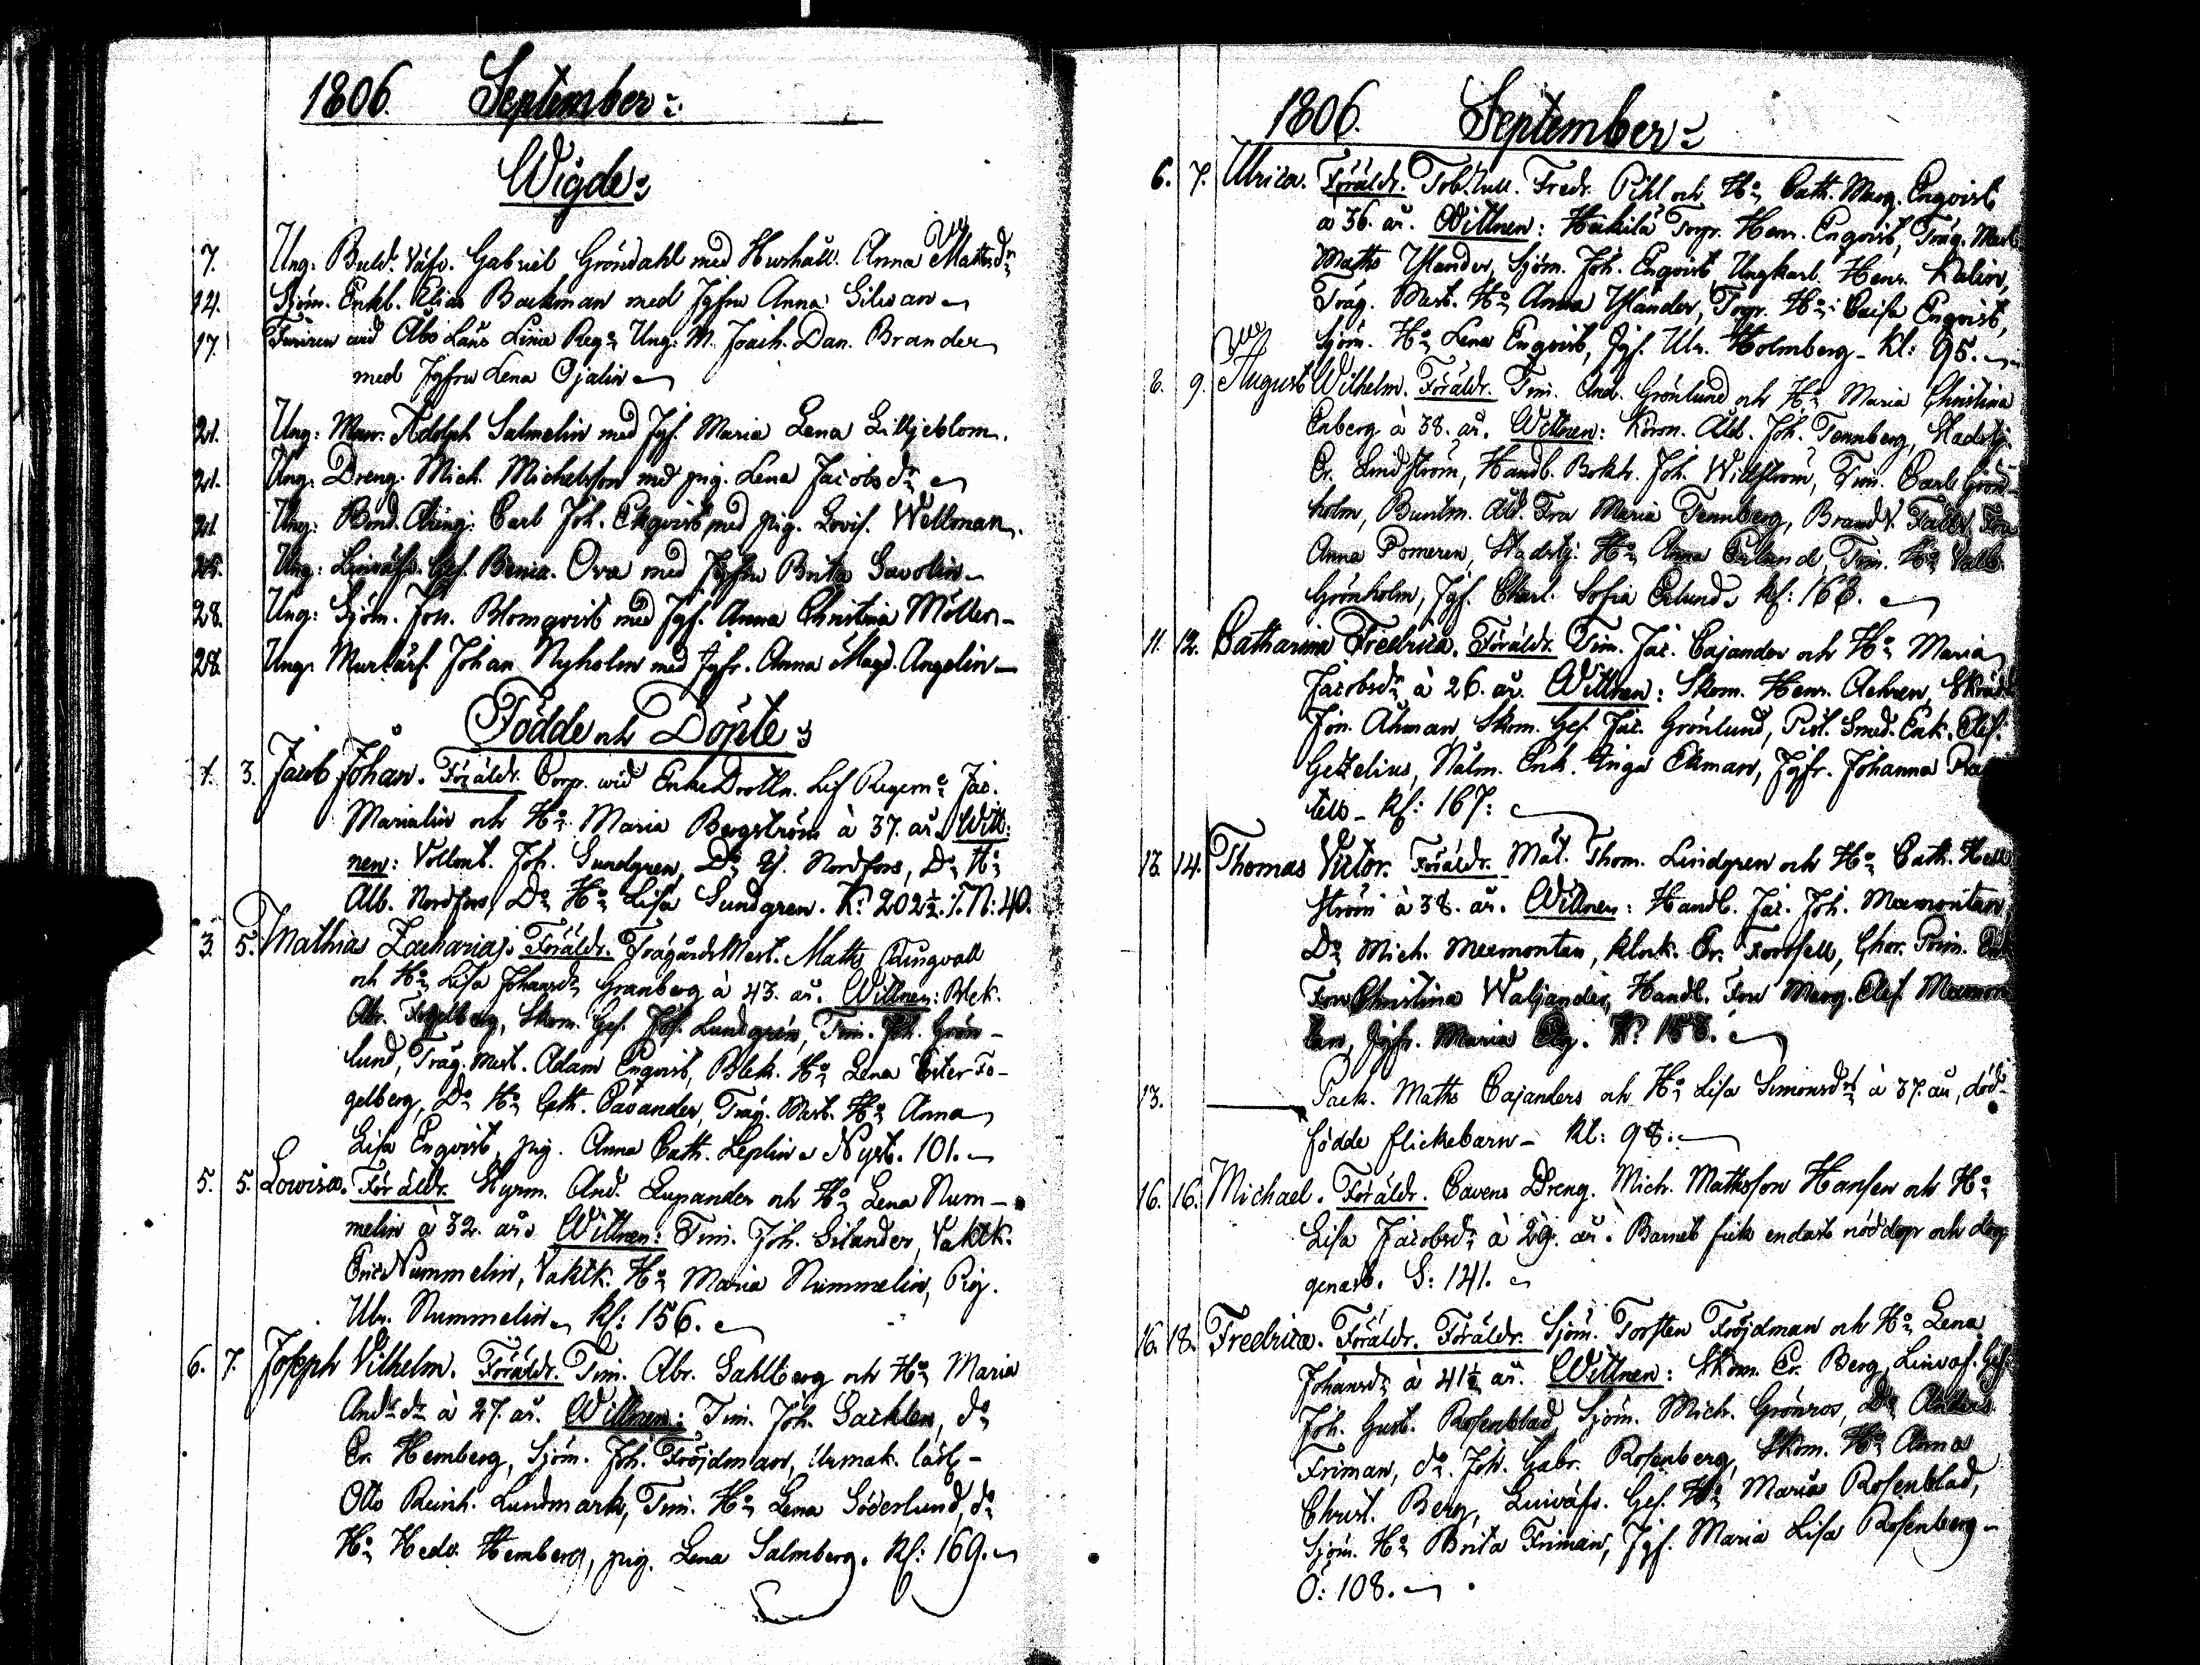 1806. September:
Wigde:
7. Ung. Buld. Väfv. Gabriel Gröndahl med Hushåll. Anna Mattsdr
14. Sjöm. Enkl. Elias Backman med Jgfru Anna Silvan
17. Furiren vid Åbo Läns Linie Reg: Ung: M. Joach. Dan. Brander
med Jgfru Lena Ojalin
21. Ung: Mur. Adolph Salmelin med Jgf. Maria Lena Lilljeblom.
21. Ung. Dreng. Mich. Michelsson med pig. Lena Jacobsdr
21. Ung: Bond. Dreng: Carl Joh. Ekqvist med pig. Lovis. Wellman.
25. Ung: Linväfv. Ges. Benja. Ova med Jgfru Brita Savolin
28. Ung: Sjöm. Joh. Blomqvist med Jgf. Anna Christina Möller
28. Ung. Murlärl. Johan Nyholm med Jgfr. Anna Magd. Angelin
Födde och Döpte:
1. 3. Jacob Johan. Föräldr. Corp. wid EnkeDrottn. Lif Regem: Jac.
Marialin och H: Maria Bergström à 37. år. Witt:
nen: Vollont. Joh. Sundgren, Do Nordfors, Do H:
Alb. Nordfors, Do H: Lisa Sundgren. K: 202½. N: 40.
3. 5. Mathias Zacharias. Föräldr. TrägårdsMest. Matts Ringvall
och H: Lisa Johansdr Granberg à 43. år. Wittnen: Blek.
Abr. Fogelberg, Skom. Ges. Jos. Lundgren, Tim. Joh. Grön-
lund, Träg. Mest. Adam Enqvist, Blek. H: Lena Ester Fo-
gelberg, Do H: Cath. Cavander, Träg. Mest. H: Anna
Lisa Enqvist, pig. Anna Cath. Leplin Nyst. 101.
5. 5. Lowisa. Föräldr. Styrm. And. Lupander och H: Lena Num-
melin à 32. år. Wittnen: Tim. Joh. Silander, Vaktk.
Eric Nummelin, Vaktk. H: Maria Nummelin, Pig.
Ulr. Nummelin Kl: 156.
6. 7. Joseph Vilhelm. Föräldr. Tim. Abr. Sahlberg och H: Maria
Andsdr à 27. år. Wittnen: Tim. Joh. Sacklen, do
Er. Hemberg, Sjöm. Joh. Fröjdman, Urmak. lärl-
Otto Reinh. Lundmark, Tim. H: Lena Söderlund, do
H: Hedv. Hemberg, pig. Lena Salmberg. Kl: 169.
1806. September:
6. 7. Ulrica. Föräldr. Tob. Fredr. Pihl och H: Cath. Marg. Enqvist
a 36. år. Wittnen: Heikilä Torp. Henr. Enqvist, Träg. Mest.
Matts Ylander, Sjöm. Joh. Enqvist, Ungkarl Henr. Kalin,
Träg. Mest. H: Anna Ylander, Torp. H: Caisa Enqvist,
Sjöm. H: Lena Enqvist, Jgf. Ulr. Holmberg - Kl: 95.
8. 9. August Wilhelm. Föräldr. Tim. And. Grönlund och H: Maria Christina
Enberg à 38. år. Wittnen: Körsn. Åld. Joh. Tennberg, Stadstj.
Er. Lindström, Handl. Bokh. Joh. Widström, Tim. Carl Grön-
holm, Buntm. Åld. Fru Maria Tennberg, Brandv. Fru
Anna Pomeren, Stadstj: H: Anna Erlund, Tim. H: Valb.
Grönholm, Jgf. Charl. Sofia Erlund. Kl: 168.
11. 12. Catharina Fredrica. Föräldr. Tim. Jac. Cajander och H: Maria
Jacobsdr à 26. år. Wittnen: Skom. Henr. Achren,
Jon. Åhman, Skom. Ges. Jac. Grönlund, Pist. Smed. Enk. Elis.
Getzelius, Nålm. Enk. Inga Ekman, Jgfr. Johanna
tell - Kl: 167:
13. 14. Thomas Victor. Föräldr. Mål. Thom. Lindgren och H: Cath. Hell
ström à 38. år. Wittnen: Handl. Jac. Joh. Mexmontan,
Do Mich. Mexmontan, Klock. Er. Forssell, Chor.
Fru Christina Waljander, Handl. Fru Marg. Elis. Mexmon
tan, Jgfr. Maria K: 188.
13. Pack. Matts Cajanders och H: Lisa Simonsdr à 37. år, död-
födde flickebarn - Kl: 98.
16. 16. Michael. Föräldr. Cavens Dreng. Mich. Mathsson Hansen och H:
Lisa Jacobsdr à 29. år. Barnet fick endast nöddop och dog
genast. S: 141.
16. 18. Fredrica. Föräldr. Föräldr. Sjöm. Torsten Fröjdman och H: Lena
Johansdr à 41½ år. Wittnen: Skom. Er. Berg, Linväf. Ges.
Joh. Gust. Rosenblad, Sjöm. Mich. Grönros, Do Anders
Friman, do. Joh. Gabr. Rosenberg, Skom. H: Anna
Christ. Berg, Linväfv. Ges. H: Maria Rosenblad,
Sjöm. H: Brita Friman, Jgf. Maria Lisa Rosenberg -
Ö: 108.